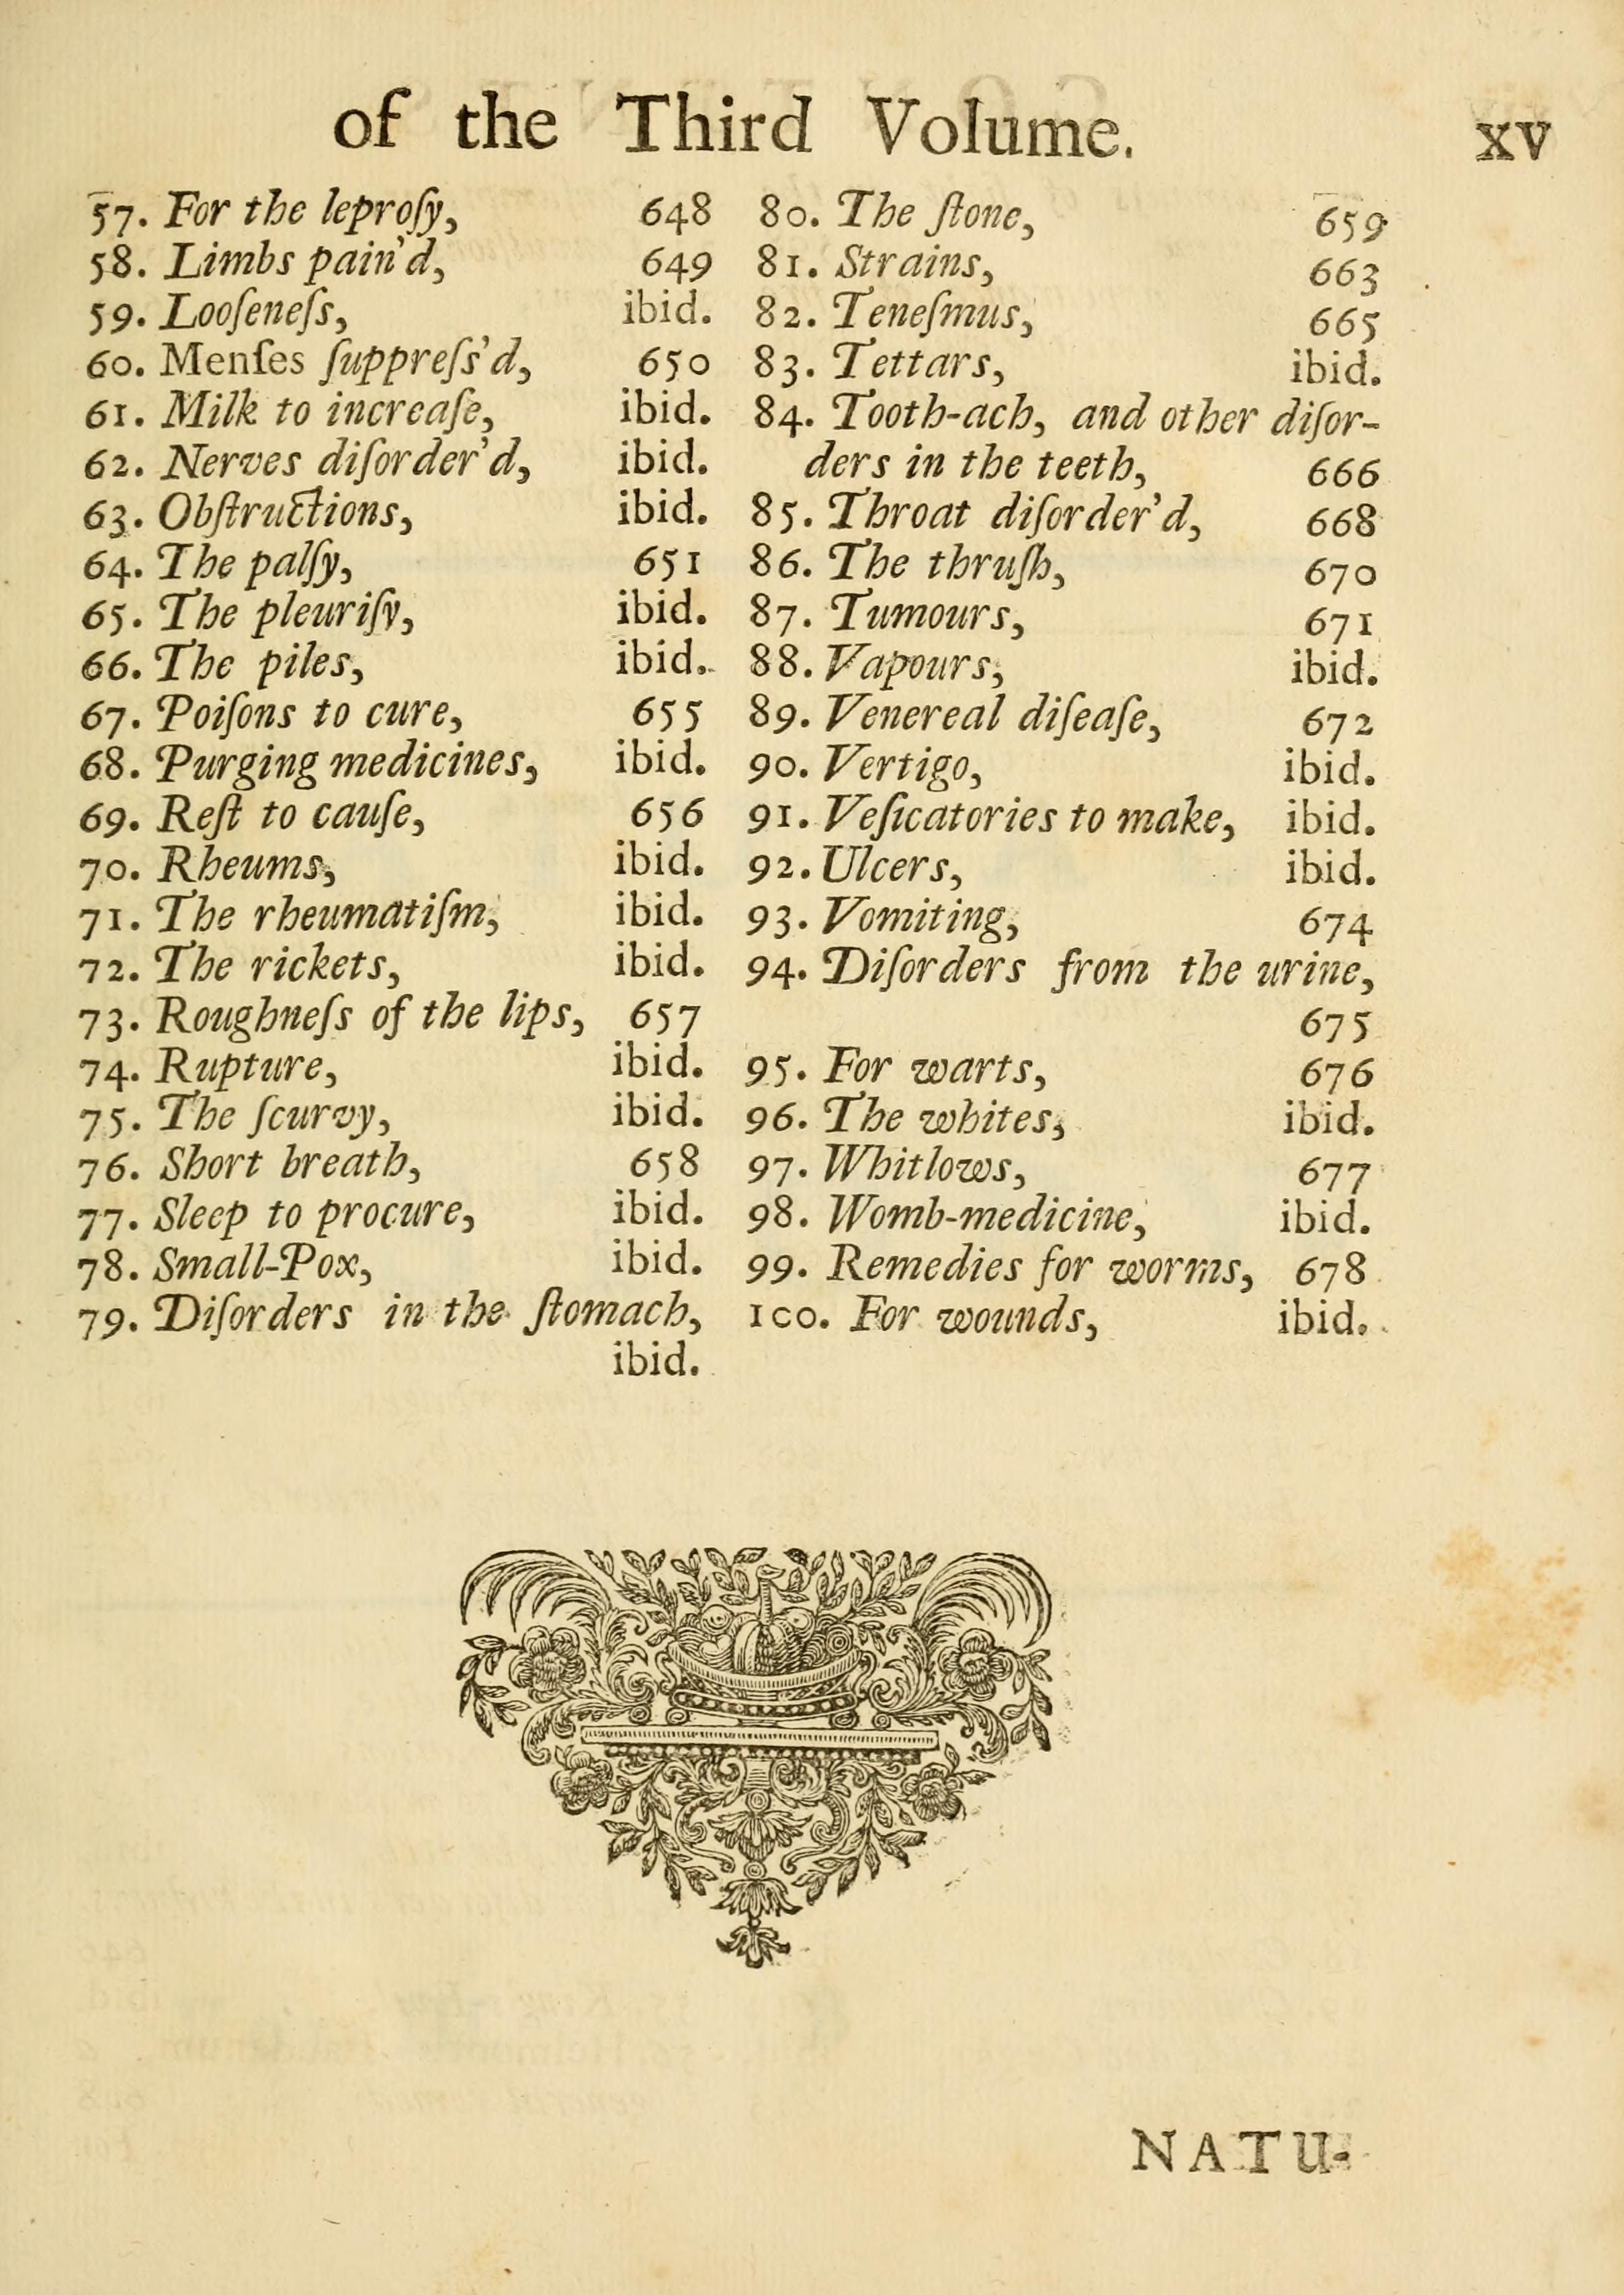 of the Third Volume. xv
57. For the leproſy, 648
58. Limbs pain'd, 649
59. Looſeneſs, ibid.
60. Menſes ſuppreſs'd, 650
61. Milk to increaſe, ibid.
62. Nerves diſorder'd, ibid.
63. Obſtructions, ibid.
64. The palſy, 651
65. The pleuriſy, ibid.
66. The piles, ibid.
67. Poiſons to cure, 655
68. Purging medicines, ibid.
69. Reſt to cauſe, 656
70. Rheums, ibid.
71. The rheumatiſm, ibid.
72. The rickets, ibid.
73. Roughneſs of the lips, 657
74. Rupture, ibid.
75. The ſcurvy, ibid.
76. Short breath, 658
77. Sleep to procure, ibid.
78. Small-Pox, ibid.
79. Diſorders in the ſtomach,
ibid.
80. The ſtone, 659
81. Strains, 663
82. Teneſmus, 665
83. Tettars, ibid.
84. Tooth-ach, and other diſor-
ders in the teeth, 666
85. Throat diſorder'd, 668
86. The thruſh, 670
87. Tumours, 671
88. Vapours, ibid.
89. Venereal diſeaſe, 672
90. Vertigo, ibid.
91. Veſicatories to make, ibid.
92. Ulcers, ibid.
93. Vomiting, 674
94. Diſorders from the urine,
675
95. For warts, 676
96. The whites, ibid.
97. Whitlows, 677
98. Womb-medicine, ibid.
99. Remedies for worms, 678
100. For wounds, ibid.
NATU-